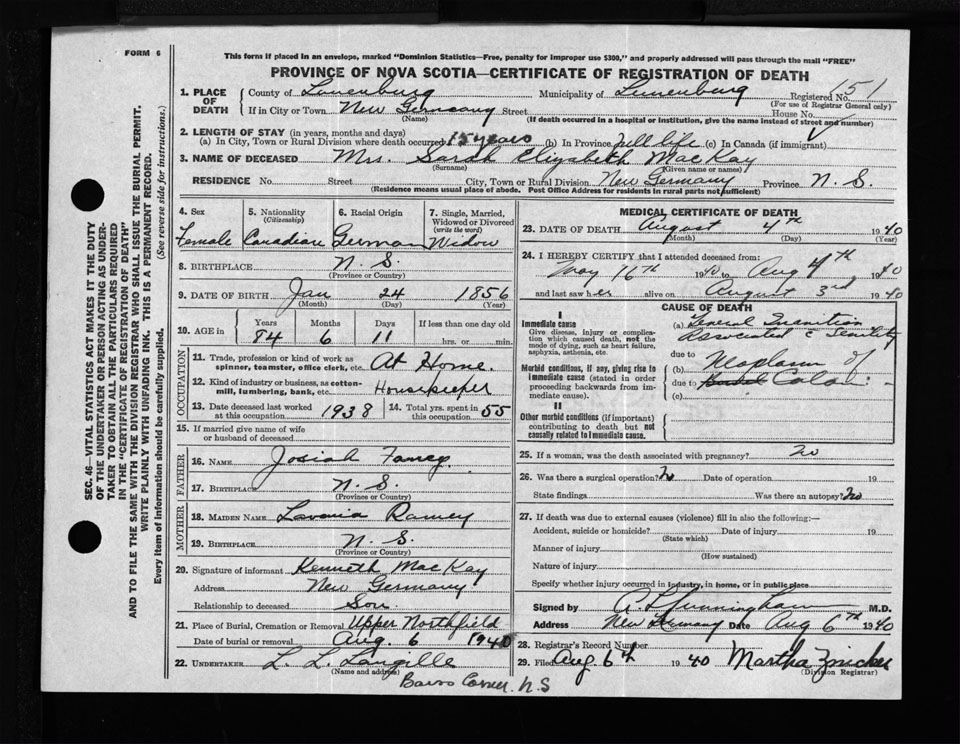 FORM 6
This form if placed in an envelope, marked "Dominion Statistics—Free, penalty for improper use $300," and properly addressed will pass through the mail "FREE"
PROVINCE OF NOVA SCOTIA—CERTIFICATE OF REGISTRATION OF DEATH
SEC. 46—VITAL STATISTICS ACT MAKES IT THE DUTY
OF THE UNDERTAKER OR PERSON ACTING AS UNDER-
TAKER TO OBTAIN ALL THE PARTICULARS REQUIRED
IN THE "CERTIFICATE OF REGISTRATION OF DEATH"
AND TO FILE THE SAME WITH THE DIVISION REGISTRAR WHO SHALL ISSUE THE BURIAL PERMIT.
WRITE PLAINLY WITH UNFADING INK. THIS IS A PERMANENT RECORD.
Every item of information should be carefully supplied. (See reverse side for instructions.)
1. PLACE OF DEATH
County of Lunenburg Municipality of Lunenburg Registered No. 151
(For use of Registrar General only)
If in City or Town New Germany Street House No.
(Name) (If death occurred in a hospital or institution, give the name instead of street and number)
2. LENGTH OF STAY (in years, months and days)
(a) In City, Town or Rural Division where death occurred 15 years (b) In Province full life (c) In Canada (if immigrant)
3. NAME OF DECEASED Mrs. Sarah Elizabeth MacKay
(Surname) (Given name or names)
RESIDENCE No. Street City, Town or Rural Division New Germany Province N. S.
(Residence means usual place of abode. Post Office Address for Residents in rural parts not sufficient)
4. Sex
Female
5. Nationality
(Citizenship)
Canadian
6. Racial Origin
German
7. Single, Married,
Widowed or Divorced
(write the word)
Widow
8. BIRTHPLACE N. S.
(Province or Country)
9. DATE OF BIRTH Jan 24 1856
(Month) (Day) (Year)
10. AGE in
Years Months Days If less than one day old
84 6 11 hrs. or min.
OCCUPATION
11. Trade, profession or kind of work as
spinner, teamster, office clerk, etc. At Home.
12. Kind of industry or business, as cotton-
mill, lumbering, bank, etc. Housekeeper
13. Date deceased last worked
at this occupation 1938
14. Total yrs. spent in
this occupation 55
15. If married give name of wife
or husband of deceased
FATHER
16. NAME Josiah Fancy.
17. BIRTHPLACE N. S.
(Province or Country)
MOTHER
18. MAIDEN NAME Lavania Ramey
19. BIRTHPLACE N. S.
(Province or Country)
20. Signature of informant Kenneth MacKay
Address New Germany
Relationship to deceased Son.
21. Place of Burial, Cremation or Removal Upper Northfield
Date of burial or removal Aug. 6 1940
22. UNDERTAKER L. L. Langille
(Name and address)
Barss Corner. N.S
MEDICAL CERTIFICATE OF DEATH
23. DATE OF DEATH August 4th 1940
(Month) (Day) (Year)
24. I HEREBY CERTIFY that I attended deceased from:
May 16th 1940 to Aug 4th, 1940
and last saw her alive on August 3rd 1940
CAUSE OF DEATH
I
Immediate cause
Give disease, injury or complica-
tion which caused death, not the
mode of dying, such as heart failure,
asphyxia, asthenia, etc.
(a) General Inanition
associated c Senility
due to
Morbid conditions, if any, giving rise to
immediate cause (stated in order
proceeding backwards from im-
mediate cause).
(b) Neoplasm of
due to Colon
(c)
II
Other morbid conditions (if important)
contributing to death but not
causally related to immediate cause.
25. If a woman, was the death associated with pregnancy? no
26. Was there a surgical operation? no Date of operation 19
State findings Was there an autopsy? no
27. If death was due to external causes (violence) fill in also the following:—
Accident, suicide or homicide? Date of injury 19
(State which)
Manner of injury
(How sustained)
Nature of injury
Specify whether injury occurred in industry, in home, or in public place
Signed by M.D.
Address New Germany Date Aug 6th 1940
28. Registrar's Record Number
29. Filed Aug 6th 1940 Martha Zwicker
(Division Registrar)